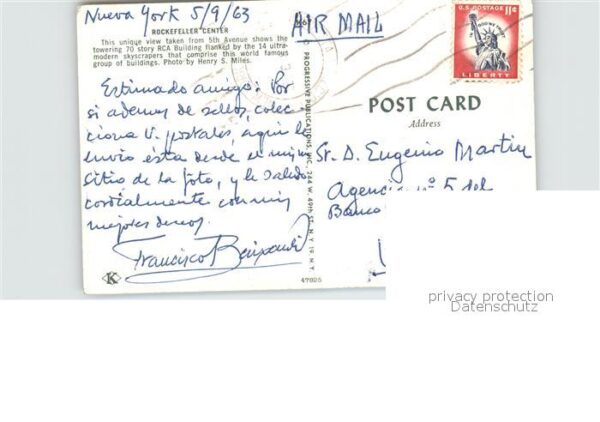 Nueva York 5/9/63
AIR MAIL
U.S. POSTAGE 11¢
IN GOD WE TRUST
LIBERTY
ROCKEFELLER CENTER
This unique view taken from 5th Avenue shows the
towering 70 story RCA Building flanked by the 14 ultra-
modern skyscrapers that comprise this world famous
group of buildings. Photo by Henry S. Miles.
Estimado amigo: Por
si ademas de sellos, colec-
ciona V. postales, aquí le
envio ésta desde el mismo
sitio de la foto, y le saluda
cordialmente con mis
mejores deseos.
Francisco
K
PROGRESSIVE PUBLICATIONS, INC. 244 W. 49th ST. N. Y. 19, N. Y.
47025
POST CARD
Address
Sr. D. Eugenio Martin
Agencia nº 5 del
Banco
privacy protection
Datenschutz